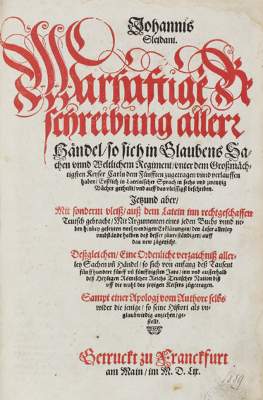 Johannis
Sleidani.
Warhaftige Be
schreibung allerr
Händel / so sich in Glaubens Sa
chen vnnd Weltlichem Regiment / vnter dem Großmäch-
tigsten Keyser Carln dem Fünfften zugetragen vnnd verlauffen
haben / Erstlich in Lateinischer Sprach in sechs vnd zwentzig
Bücher getheilt / vnd auff das vleissigst beschriben.
Jetzund aber /
Mit sonderm vleiß / auß dem Latein inn rechtgeschaffen
Teutsch gebracht / Mit Argumenten eines jeden Buchs vnnd ne-
ben
den Leser allerley
vmbstände besser zuuerständigen / auff
das new zugericht.
Deßgleichen / Eine Ordenliche verzeichniß aller-
ley Sachen vñ Händel / so sich von anfang deß Tausent
fünffhundert fünff vñ fünfftzigsten Jars / inn vnd ausserhalb
deß Heyligen Römischen Reichs Teutscher Nation biß
auff die wahl des jetzigen Keysers zugetragen.
Sampt einer Apologi vom Authore selbs
wider die jenige / so seine Histori als vn-
glaubwirdig anziehen / ge-
stellt.
Getruckt zu Franckfurt
am Main / im M. D. Lix.